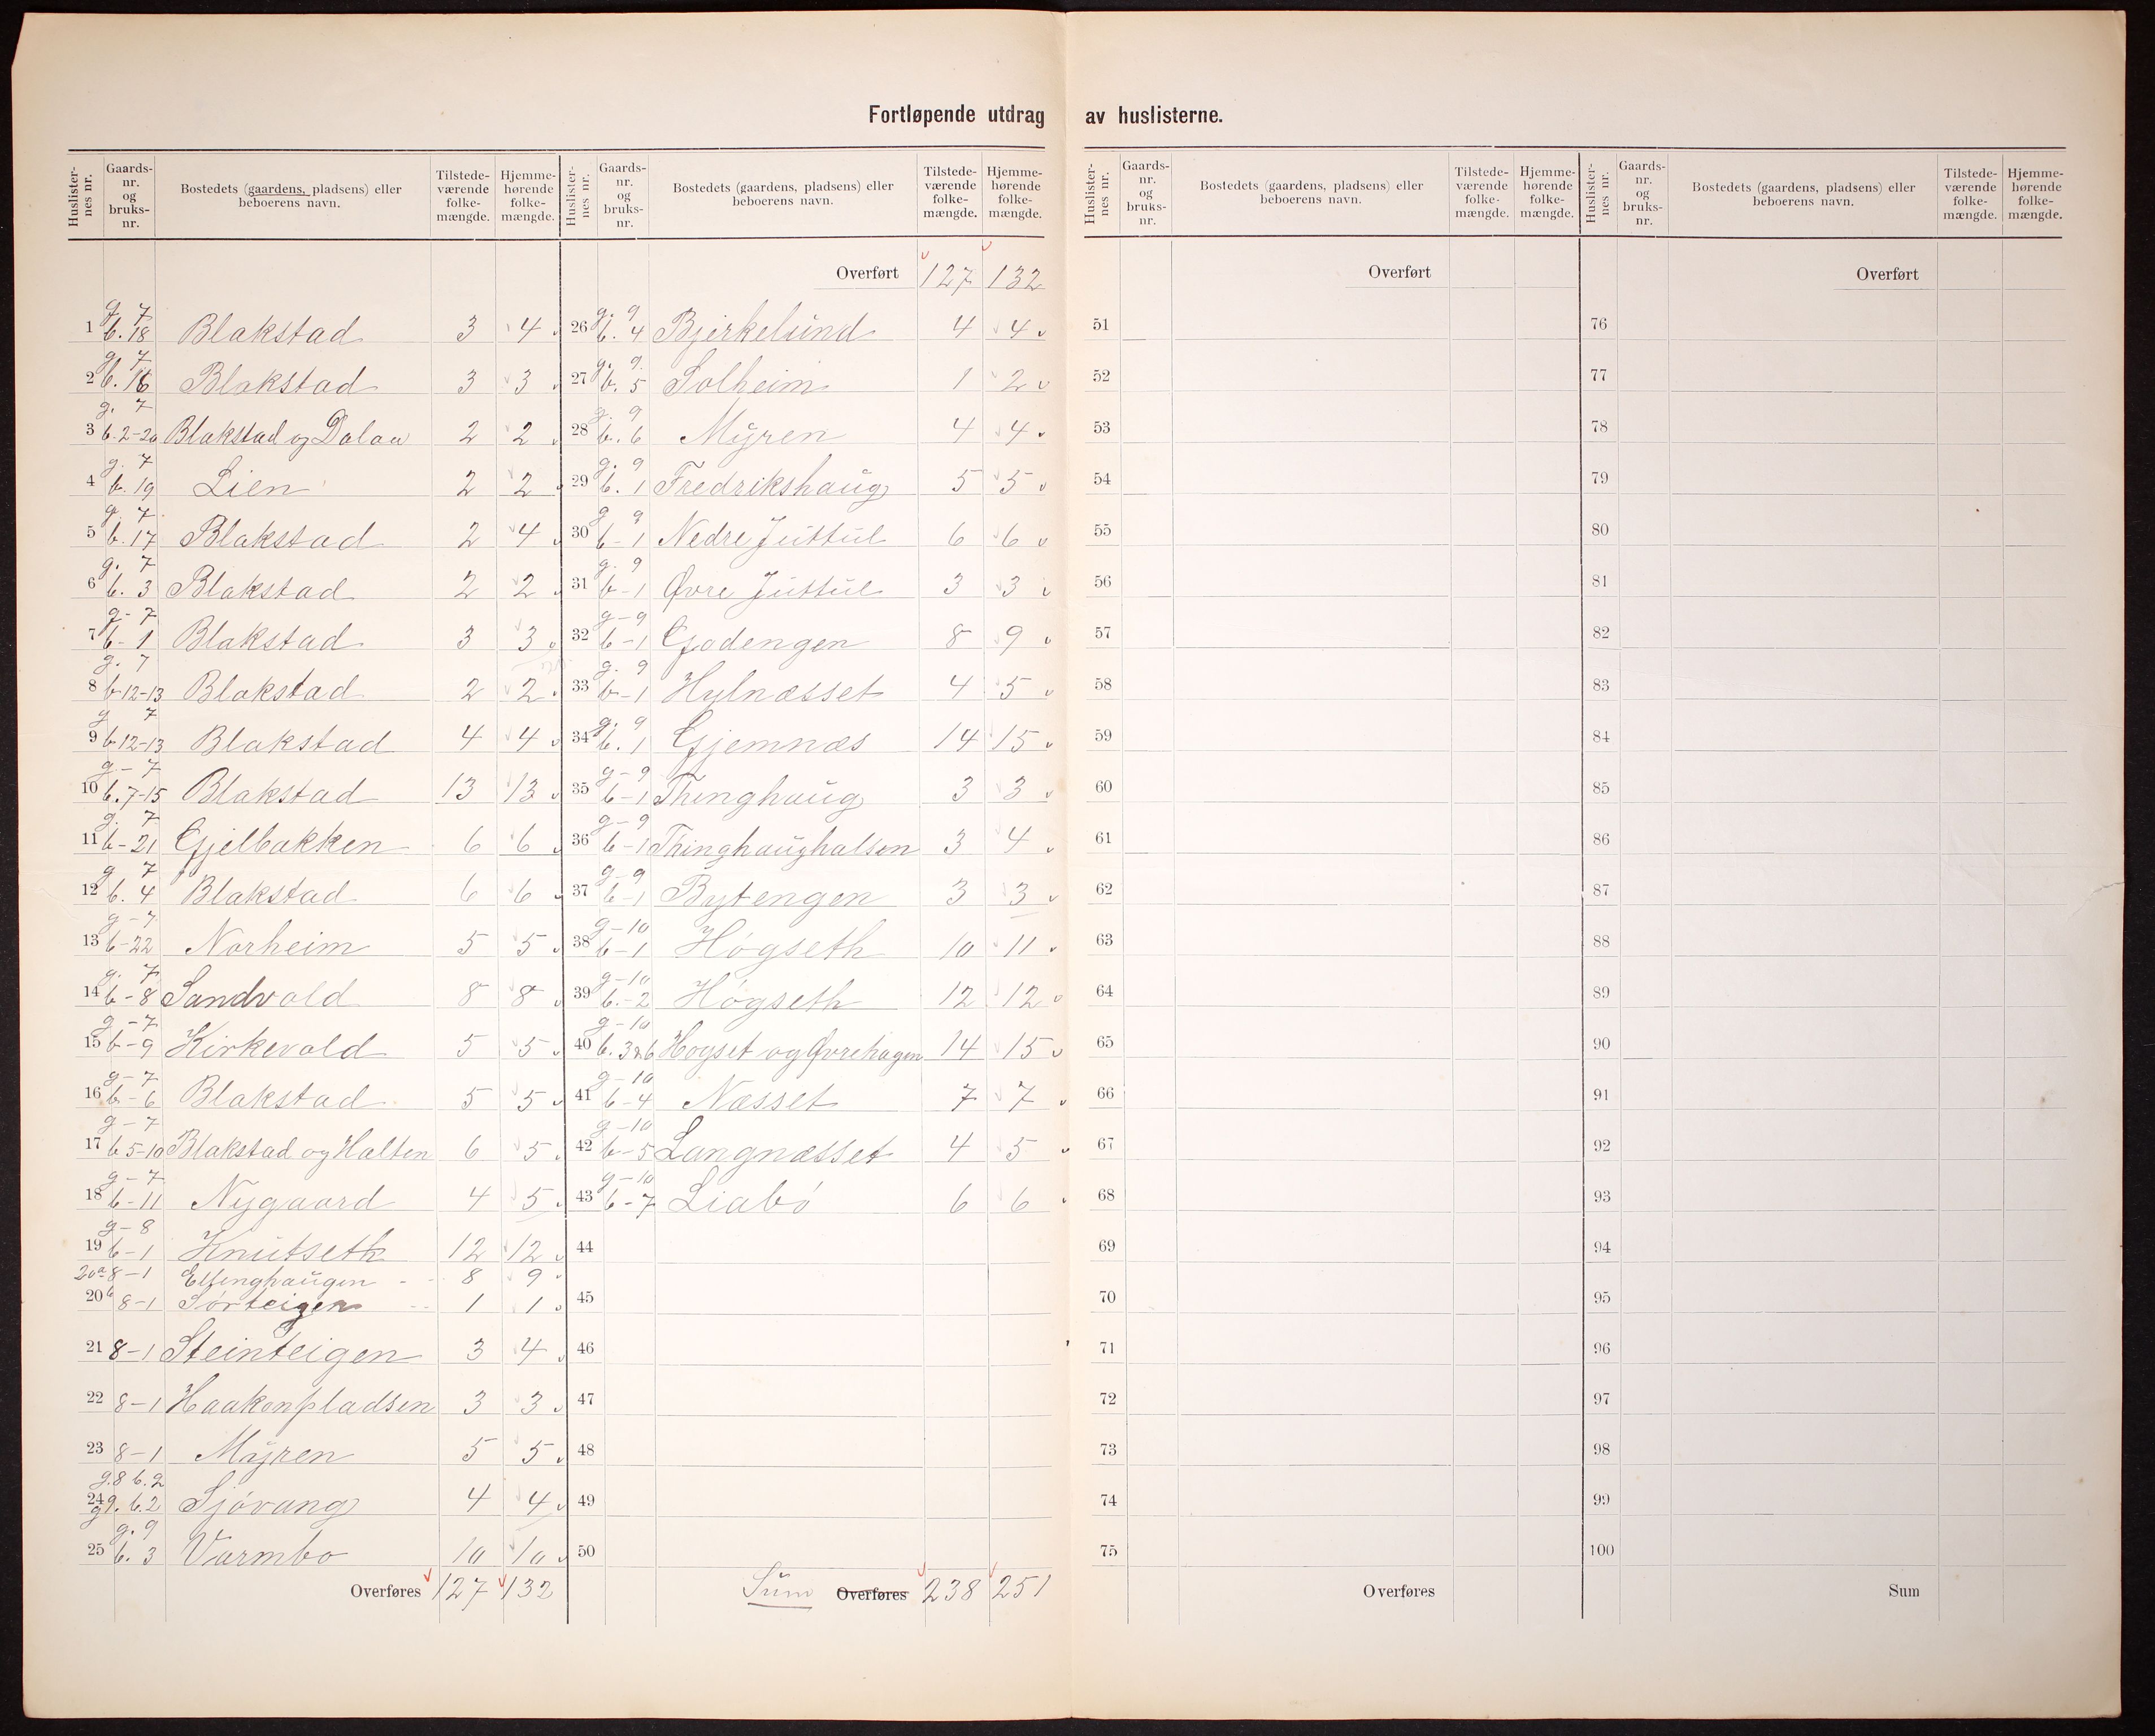 Fortløpende utdrag av huslisterne.
Huslisternes nr. Gaards-nr. og bruks-nr. Bostedets (gaardens, pladsens) eller beboerens navn. Tilstede-værende folke-mængde. Hjemme-hørende folke-mængde.
1 g. 7 b. 18 Blakstad 3 4
2 g. 7 b. 16 Blakstad 3 3
3 g. 7 b. 2-20 Blakstad og Dalaa 2 2
4 g. 7 b. 19 Lien 2 2
5 g. 7 b. 17 Blakstad 2 4
6 g. 7 b. 3 Blakstad 2 2
7 g-7 b-1 Blakstad 3 3
8 g. 7 b-12-13 Blakstad 2 2
9 g 7 b-12-13 Blakstad 4 4
10 g-7 b. 7-15 Blakstad 13 13
11 g. 7 b-21 Gjelbakken 6 6
12 g 7 b. 4 Blakstad 6 6
13 g-7 b-22 Norheim 5 5
14 g. 7 b-8 Sandvold 8 8
15 g-7 b-9 Kirkevold 5 5
16 g-7 b-6 Blakstad 5 5
17 g-7 b 5-10 Blakstad og Halten 6 5
18 g-7 b-11 Nygaard 4 5
19 g-8 b-1 Knutseth 12 12
20a 8-1 Ellinghaugen 8 9
20b 8-1 Sørteigen 1 1
21 8-1 Steinteigen 3 4
22 8-1 Haakenpladsen 3 3
23 8-1 Myren 5 5
24 g. 8 b. 2 g 9. b. 2 Sjøvang 4 4
25 g. 9 b. 3 Varmbo 10 10
Overføres 127 132
Huslisternes nr. Gaards-nr. og bruks-nr. Bostedets (gaardens, pladsens) eller beboerens navn. Tilstede-værende folke-mængde. Hjemme-hørende folke-mængde.
Overført 127 132
26 g. 9 b. 4 Bjerkelund 4 4
27 g. 9. b. 5 Solheim 1 2
28 g. 9 b. 6 Myren 4 4
29 g. 9 b. 1 Fredrikshaug 5 5
30 g 9 b-1 Nedre Juttul 6 6
31 g. 9 b-1 Øvre Juttul 3 3
32 g-9 b-1 Godengen 8 9
33 g. 9 b-1 Hylnæsset 4 5
34 g. 9 b. 1 Gjemnæs 14 15
35 g-9 b-1 Thinghaug 3 3
36 g-9 b-1 Thinghaughalsen 3 4
37 g-9 b-1 Bytengen 3 3
38 g-10 b-1 Høgseth 10 11
39 g-10 b.-2 Høgseth 12 12
40 g-10 b. 3 & 6 Høgset og Øvrehagen 14 15
41 g-10 b-4 Næsset 7 7
42 g-10 b-5 Langnæsset 4 5
43 g-10 b-7 Liabø 6 6
44
45
46
47
48
49
50
Sum Overføres 238 251
Huslisternes nr. Gaards-nr. og bruks-nr. Bostedets (gaardens, pladsens) eller beboerens navn. Tilstede-værende folke-mængde. Hjemme-hørende folke-mængde.
Overført
51
52
53
54
55
56
57
58
59
60
61
62
63
64
65
66
67
68
69
70
71
72
73
74
75
Overføres
Huslisternes nr. Gaards-nr. og bruks-nr. Bostedets (gaardens, pladsens) eller beboerens navn. Tilstede-værende folke-mængde. Hjemme-hørende folke-mængde.
Overført
76
77
78
79
80
81
82
83
84
85
86
87
88
89
90
91
92
93
94
95
96
97
98
99
100
Sum